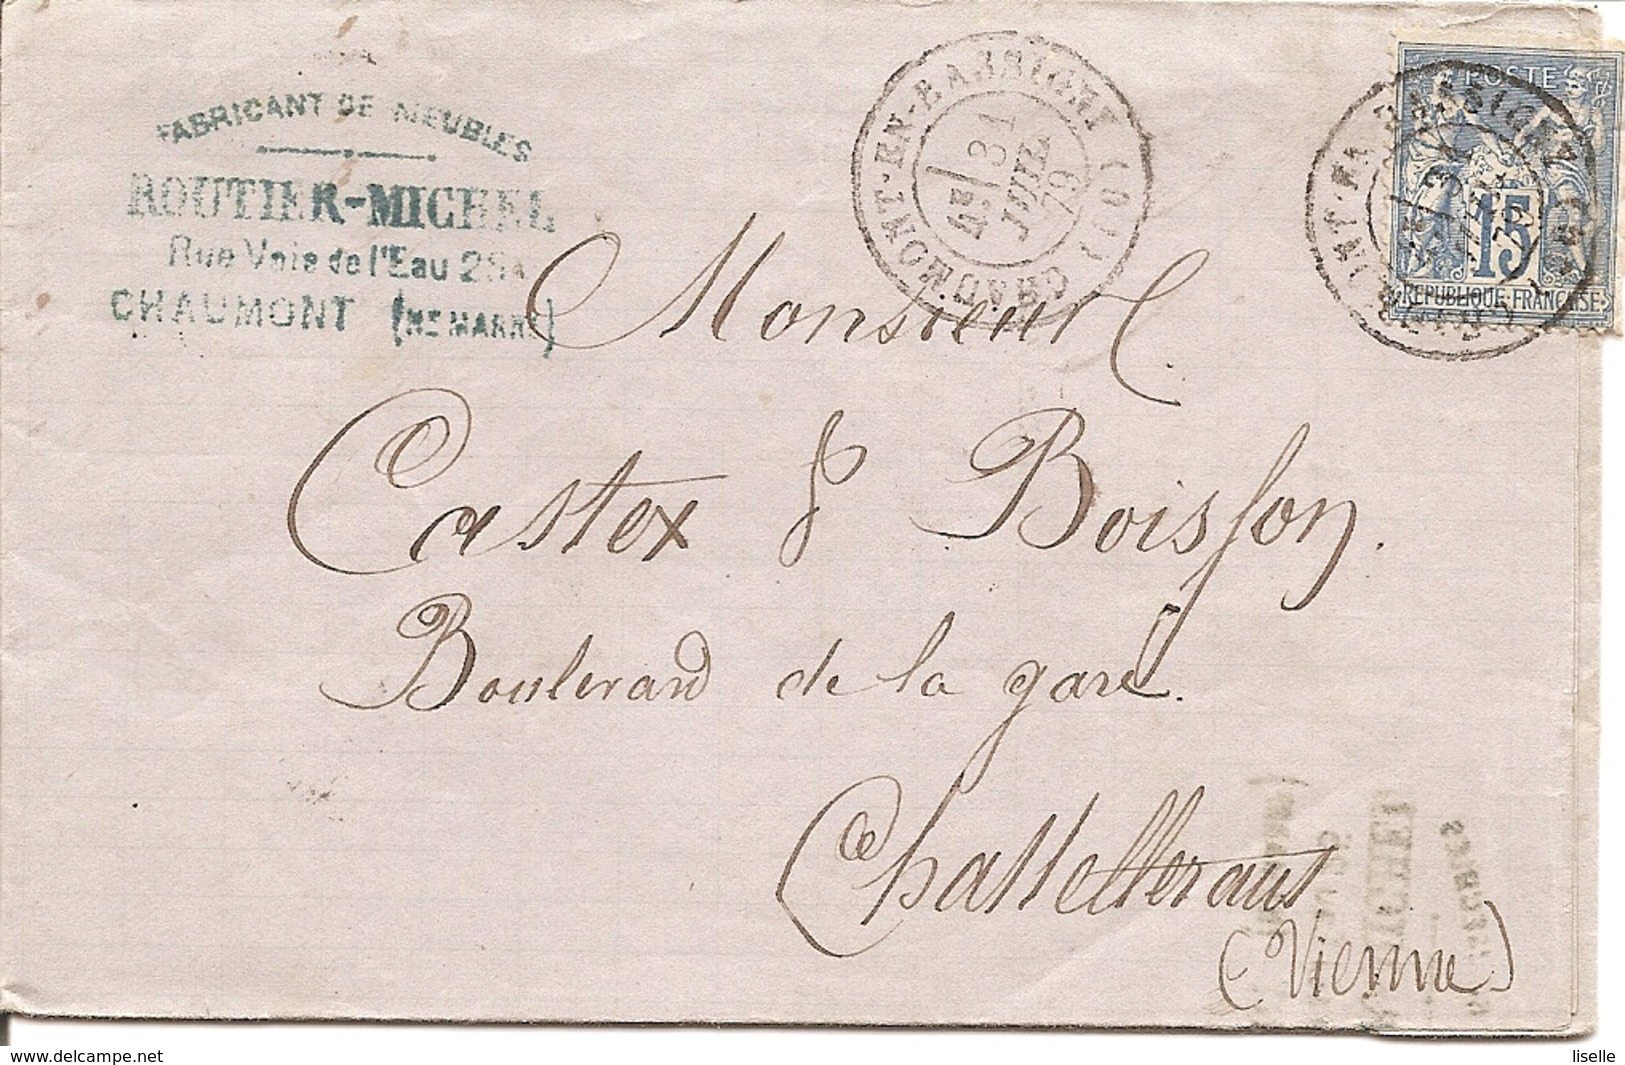 FABRICANT DE MEUBLES
ROUTIER-MICHEL
Rue Voie de l'Eau
CHAUMONT (HTE MARNE)
CHAUMONT-EN-BASSIGNY
31
JUIL
79
POSTE
15
REPUBLIQUE FRANCAISE
Monsieur
Castex & Boisson.
Boulevard de la gare.
Chattelleraut
(Vienne)
www.delcampe.net
liselle